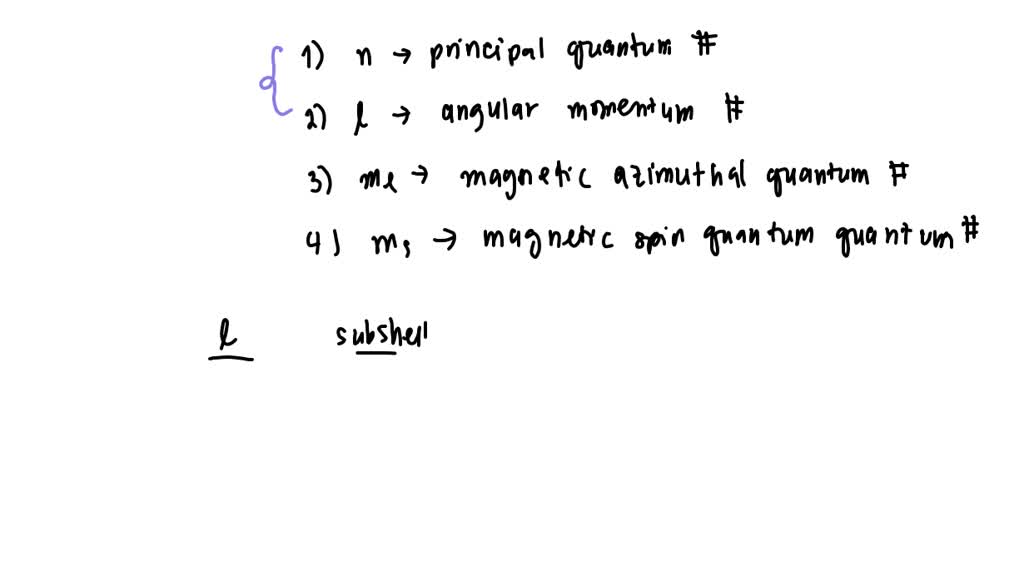 1) n → principal quantum #
2) l → angular momentum #
3) ml → magnetic azimuthal quantum #
4) ms → magnetic spin quantum quantum #
l subshell